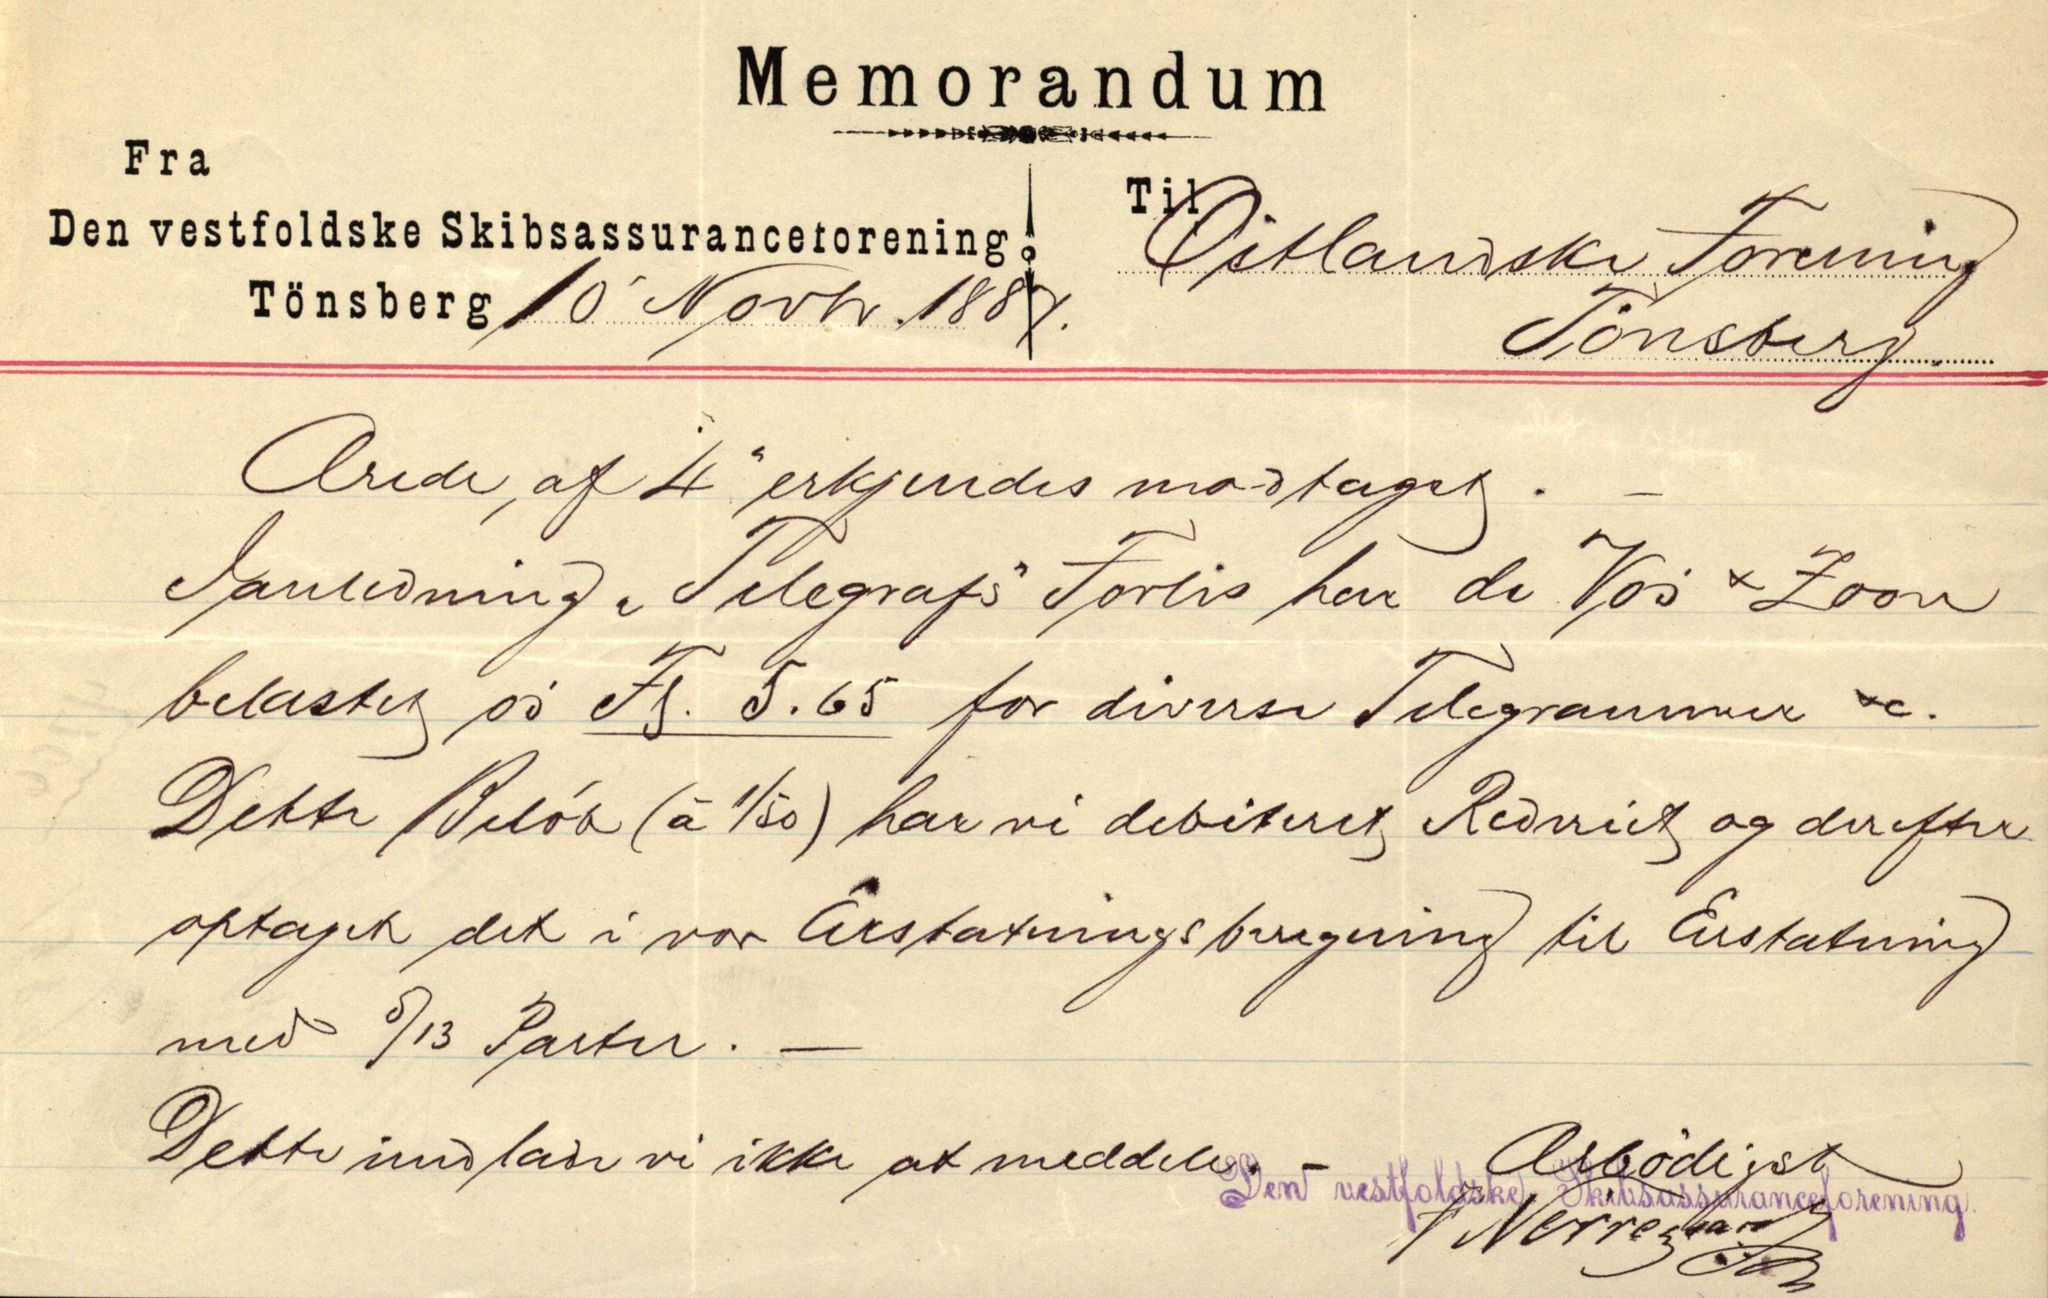 Memorandum
Fra
Den vestfoldske Skibsassuranceforening
Tönsberg 10' Novbr. 1887.
Til Östlandske Forening
Tönsberg.
Ærede, af 4" erkjendes modtaget. —
I anledning „Telegrafs" Forlis har de Vos & Zoon
belastet os Fl. 5.65 for diverse Telegrammer &c.
Dette Beløb (à 1/50) har vi debiteret Rederiet og derefter
optaget det i vor Erstatningsberegning til Erstatning
med 8/13 Parter. —
Dette undlade vi ikke at meddele. —
Ærbödigst
Den vestfoldske Skibsassuranceforening.